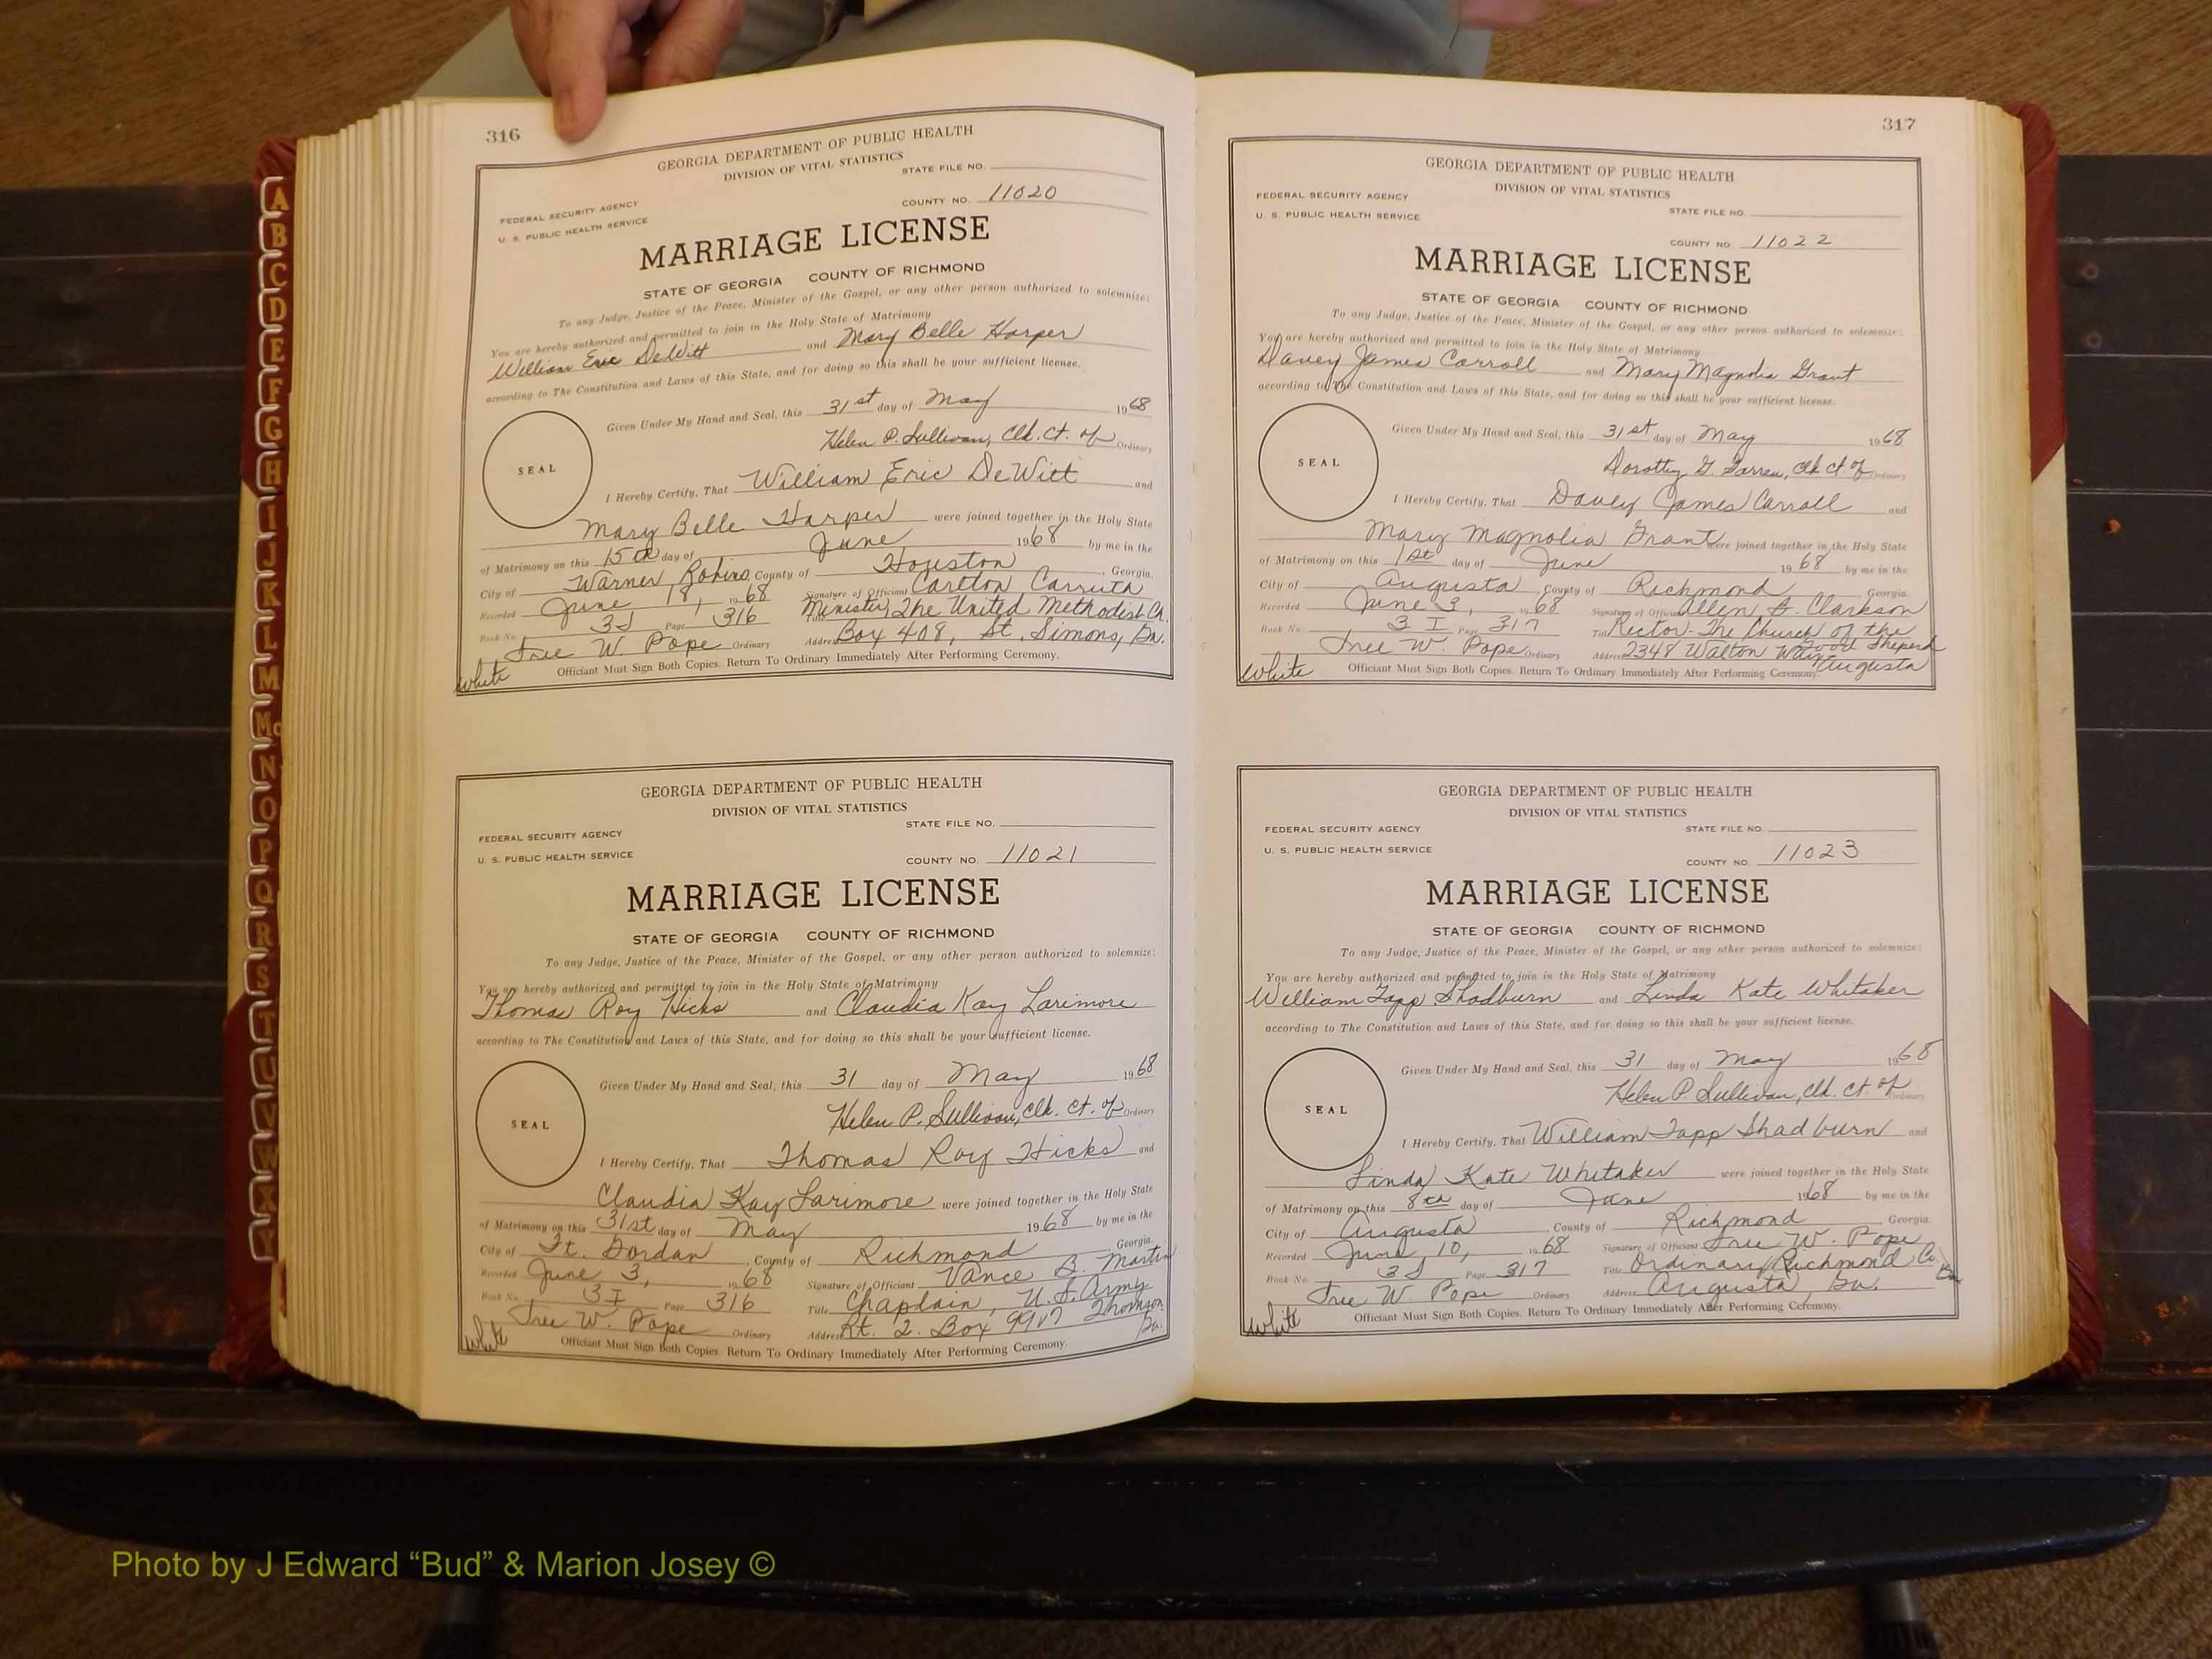 316
GEORGIA DEPARTMENT OF PUBLIC HEALTH
DIVISION OF VITAL STATISTICS
STATE FILE NO.
FEDERAL SECURITY AGENCY
U. S. PUBLIC HEALTH SERVICE
COUNTY NO. 11020
MARRIAGE LICENSE
STATE OF GEORGIA COUNTY OF RICHMOND
To any Judge, Justice of the Peace, Minister of the Gospel, or any other person authorized to solemnize:
You are hereby authorized and permitted to join in the Holy State of Matrimony
William Eric DeWitt and Mary Belle Harper
according to The Constitution and Laws of this State, and for doing so this shall be your sufficient license.
Given Under My Hand and Seal, this 31st day of May 1968
Helen P. Sullivan, Clk. Ct. of Ordinary
SEAL
I Hereby Certify, That William Eric DeWitt and
Mary Belle Harper were joined together in the Holy State
of Matrimony on this 15th day of June 1968 by me in the
City of Warner Robins, County of Houston, Georgia.
Recorded June 18, 1968 Signature of Officiant Carlton Carruth
Book No. 3J Page 316 Title Minister, The United Methodist Ch.
Tree W. Pope Ordinary Address Box 408, St. Simons, Ga.
Officiant Must Sign Both Copies. Return To Ordinary Immediately After Performing Ceremony.
White
GEORGIA DEPARTMENT OF PUBLIC HEALTH
DIVISION OF VITAL STATISTICS
STATE FILE NO.
FEDERAL SECURITY AGENCY
U. S. PUBLIC HEALTH SERVICE
COUNTY NO. 11021
MARRIAGE LICENSE
STATE OF GEORGIA COUNTY OF RICHMOND
To any Judge, Justice of the Peace, Minister of the Gospel, or any other person authorized to solemnize:
You are hereby authorized and permitted to join in the Holy State of Matrimony
Thomas Roy Hicks and Claudia Kay Larimore
according to The Constitution and Laws of this State, and for doing so this shall be your sufficient license.
Given Under My Hand and Seal, this 31 day of May 1968
Helen P. Sullivan, Clk. Ct. of Ordinary
SEAL
I Hereby Certify, That Thomas Roy Hicks and
Claudia Kay Larimore were joined together in the Holy State
of Matrimony on this 31st day of May 1968 by me in the
City of Ft. Gordan, County of Richmond, Georgia.
Recorded June 3, 1968 Signature of Officiant Vance B. Martin
Book No. 3 I Page 316 Title Chaplain, U.S. Army
Tree W. Pope Ordinary Address Rt. 2. Box 99 Thomson Ga.
Officiant Must Sign Both Copies. Return To Ordinary Immediately After Performing Ceremony.
White
317
GEORGIA DEPARTMENT OF PUBLIC HEALTH
DIVISION OF VITAL STATISTICS
FEDERAL SECURITY AGENCY
U. S. PUBLIC HEALTH SERVICE
STATE FILE NO.
COUNTY NO. 11022
MARRIAGE LICENSE
STATE OF GEORGIA COUNTY OF RICHMOND
To any Judge, Justice of the Peace, Minister of the Gospel, or any other person authorized to solemnize:
You are hereby authorized and permitted to join in the Holy State of Matrimony
Davey James Carroll and Mary Magnolia Grant
according to The Constitution and Laws of this State, and for doing so this shall be your sufficient license.
Given Under My Hand and Seal, this 31st day of May 1968
Dorothy G. Clk Ct of Ordinary
SEAL
I Hereby Certify, That Davey James Carroll and
Mary Magnolia Grant were joined together in the Holy State
of Matrimony on this 1st day of June 1968 by me in the
City of Augusta, County of Richmond, Georgia.
Recorded June 3, 1968 Signature of Officiant Allen B. Clarkson
Book No. 3 I Page 317 Title Rector - The Church of the Good Sheperd
Tree W. Pope Ordinary Address 2348 Walton Way Augusta
Officiant Must Sign Both Copies. Return To Ordinary Immediately After Performing Ceremony.
White
GEORGIA DEPARTMENT OF PUBLIC HEALTH
DIVISION OF VITAL STATISTICS
FEDERAL SECURITY AGENCY
STATE FILE NO.
U. S. PUBLIC HEALTH SERVICE
COUNTY NO. 11023
MARRIAGE LICENSE
STATE OF GEORGIA COUNTY OF RICHMOND
To any Judge, Justice of the Peace, Minister of the Gospel, or any other person authorized to solemnize:
You are hereby authorized and permitted to join in the Holy State of Matrimony
William Tapp Shadburn and Linda Kate Whitaker
according to The Constitution and Laws of this State, and for doing so this shall be your sufficient license.
Given Under My Hand and Seal, this 31 day of May 1968
Helen P. Sullivan, Clk. Ct. of Ordinary
SEAL
I Hereby Certify, That William Tapp Shadburn and
Linda Kate Whitaker were joined together in the Holy State
of Matrimony on this 8th day of June 1968 by me in the
City of Augusta, County of Richmond, Georgia.
Recorded June 10, 1968 Signature of Officiant Tree W. Pope
Book No. 3J Page 317 Title Ordinary Richmond Co. Ga
Tree W Pope Ordinary Address Augusta, Ga.
Officiant Must Sign Both Copies. Return To Ordinary Immediately After Performing Ceremony.
White
A
B
C
D
E
F
G
H
I
J
K
L
M
Mc
N
O
P
Q
R
S
T
U
V
W
X
Y
Photo by J Edward “Bud” & Marion Josey ©